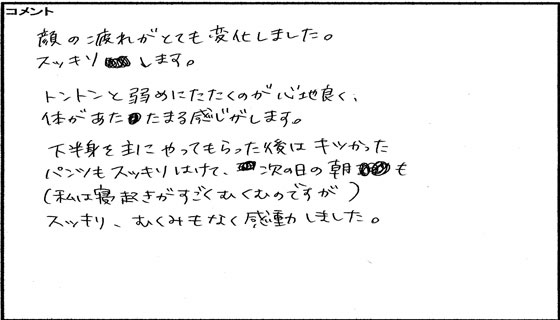 コメント
顔の疲れがとても変化しました。
スッキリします。
トントンと弱めにたたくのが心地良く、
体があたたまる感じがします。
下半身を主にやってもらった後はキツかった
パンツもスッキリはけて、次の日の朝も
(私は寝起きがすごくむくむのですが)
スッキリ、むくみもなく感動しました。